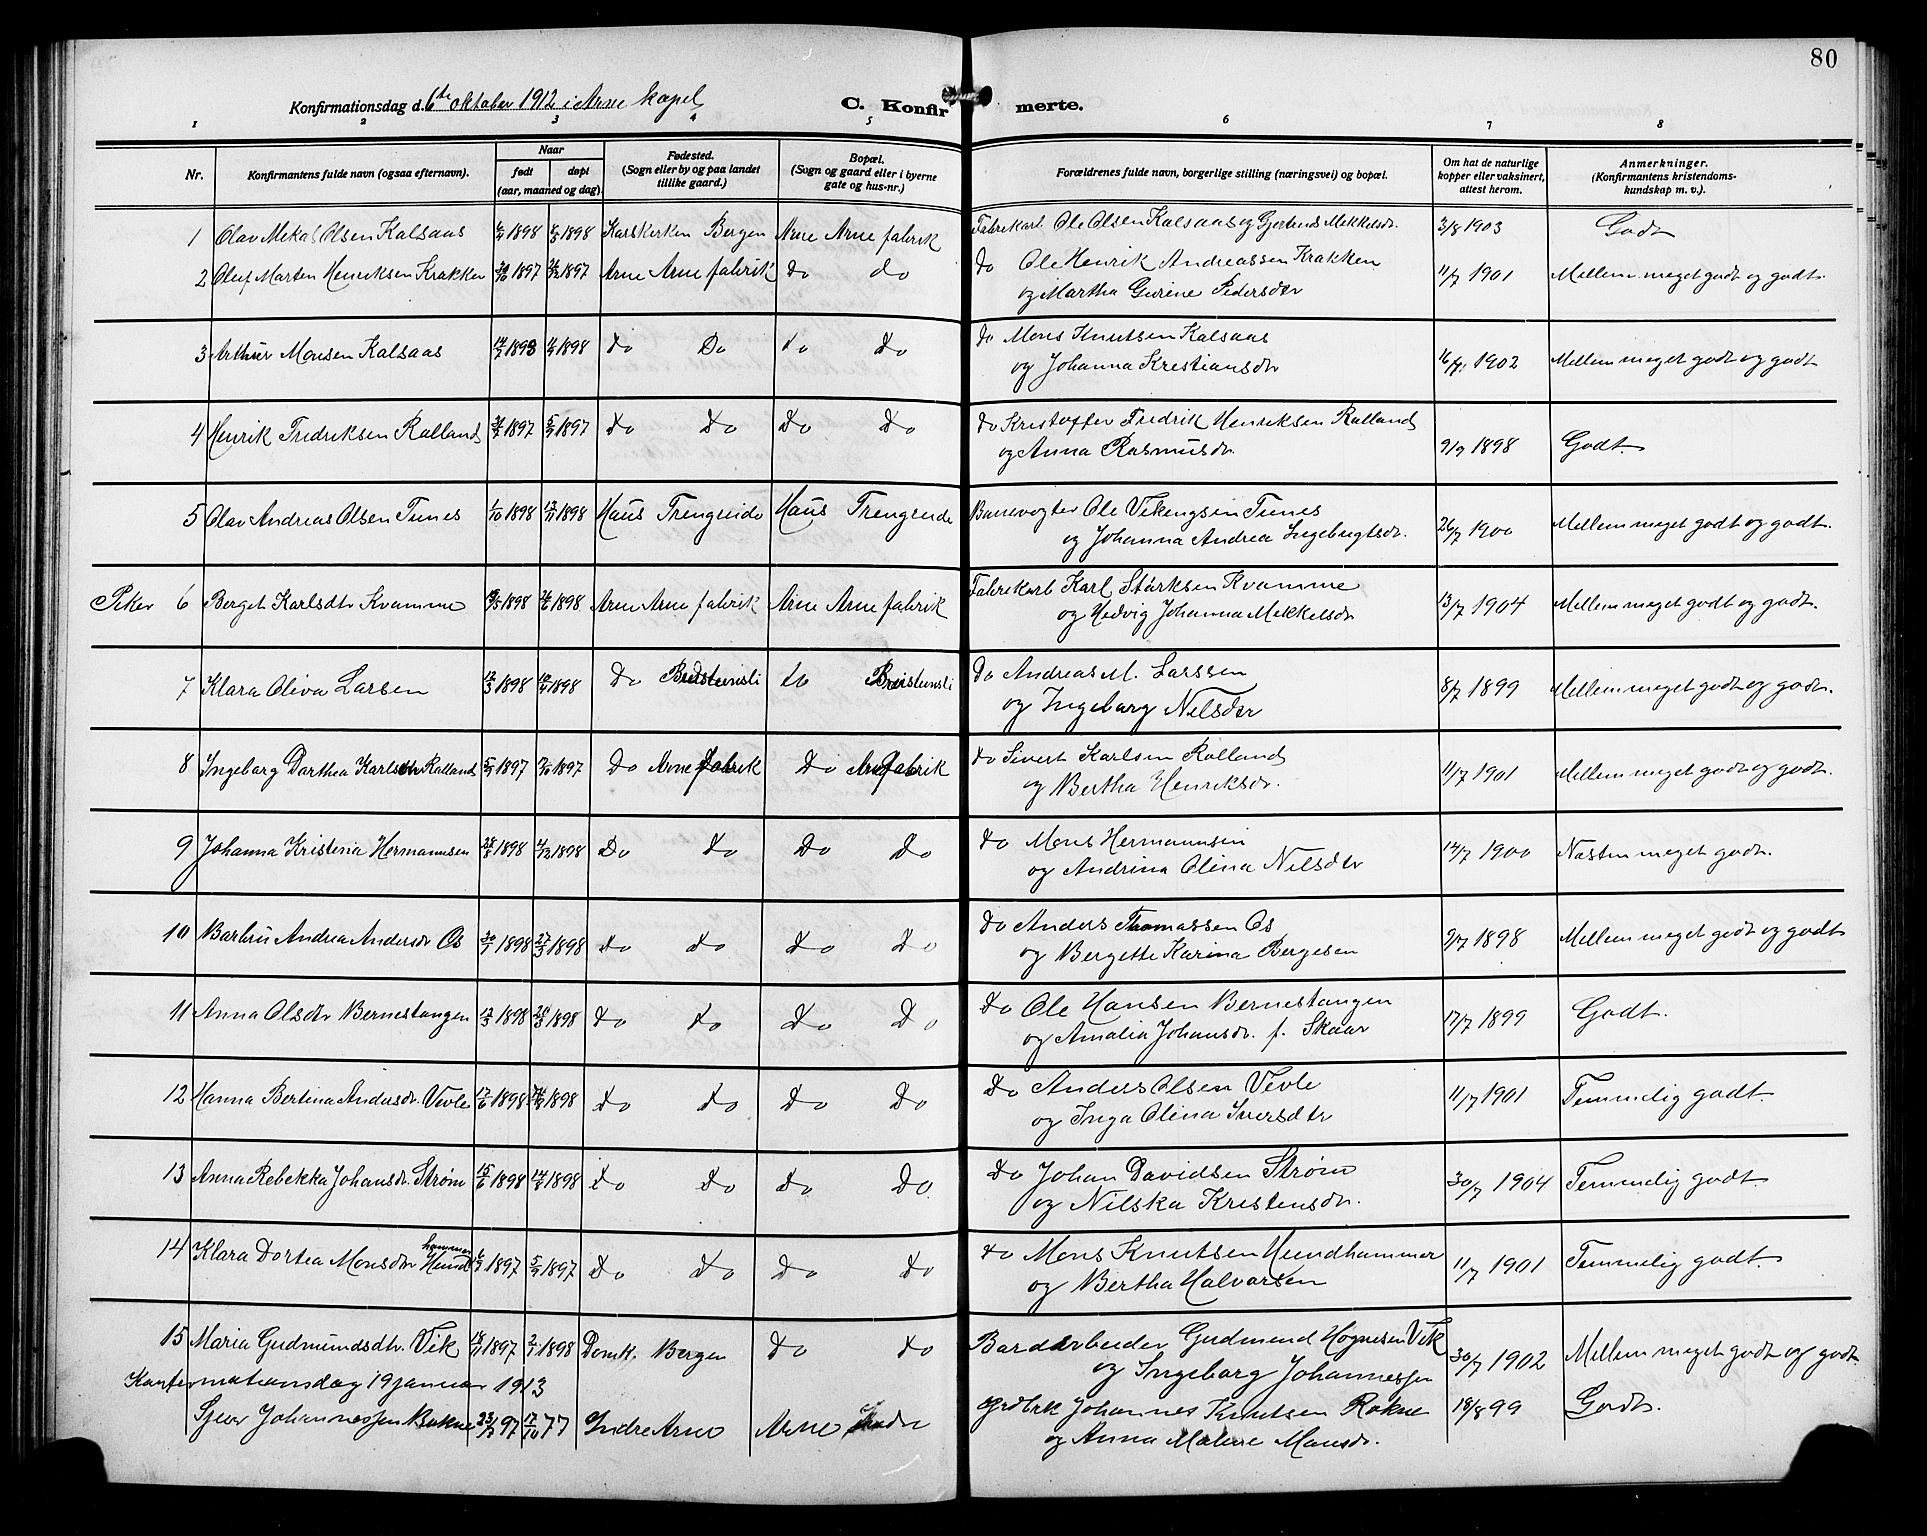 80
Konfirmationsdag d. 6te oktober 1912 i Arne kapel
C. Konfirmerte.
1 2 3 4 5 6 7 8
Nr. Konfirmantens fulde navn (ogsaa efternavn). Naar født døpt (aar, maaned og dag). Fødested. (Sogn eller by og paa landet tillike gaard.) Bopæl. (Sogn og gaard eller i byerne gate og hus-nr.) Forældrenes fulde navn, borgerlige stilling (næringsvei) og bopæl. Om hat de naturlige kopper eller vaksinert, attest herom. Anmerkninger. (Konfirmantens kristendomskundskap m. v.).
1 Olav Mekal Olsen Kalsaas 1898 1898 Korskerken Bergen Arne Arne fabrik Fabrikarb. Ole Olsen Kalsaas og Gjertrud Mekkelsdr. 3/8 1903 Godt
2 Oluf Marten Henriksen Krakken 1897 1897 Arne Arne fabrik do do do Ole Henrik Andreassen Krakken 11/7 1901 Mellem meget godt og godt.
og Martha Gurine Pedersdtr
3 Arthur Monsen Kalsaas 1898 1898 do Do do Do do Mons Knutsen Kalsaas 16/7 1902 Mellem meget godt og godt
og Johanna Kristiansdr
4 Henrik Fredriksen Ralland 1897 1897 Do Do Do Do do Kristoffer Fredrik Henriksen Ralland 9/9 1898 Godt.
og Anna Rasmusdr.
5 Olav Andreas Olsen Tunes 1/10 1898 13/11 1898 Haus Trengreide Haus Trengreide Banevogter Ole Vikengsen Tunes 26/7 1900 Mellem meget godt og godt.
og Johanna Andrea Ingebrigtsdr.
6 Berget Karlsdtr Kvamme 1898 1898 Arne Arne fabrik Arne Arne fabrik Fabrikarb Karl Størksen Kvamme 13/7 1904 Mellem meget godt og godt.
og Hedvig Johanna Mekkelsdr
7 Klara Oliva Larsen 1898 1898 Do Breistensli do Breistensli Do Andreas M. Larssen 8/7 1899 Mellem meget godt og godt.
og Ingeborg Nilsdtr
8 Ingeborg Dorthea Karlsdtr Ralland 1897 1897 Do Arne fabrik Do Arne fabrik do Sivert Karlsen Ralland 11/7 1901 Mellem meget godt og godt.
og Bertha Henriksdr.
9 Johanna Kristina Hermannsen 1898 1898 Do Do Do Do do Mons Hermannsen 12/7 1900 Næsten meget godt.
og Andrina Olina Nilsdtr
10 Barbru Andrea Andersdr Os 1898 27/3 1898 Do Do Do Do do Anders Thomassen Os 9/7 1898 Mellem meget godt og godt
og Bergette Karina Bergesen
11 Anna Olsdtr Bernestangen 1898 1898 Do Do Do Do do Ole Hansen Bernestangen 17/7 1899 Godt.
og Amalia Johansdr. f. Skaar
12 Hanna Bertina Andersdr. Vevle 1898 1898 Do Do Do Do Do Anders Olsen Vevle 11/7 1901 Temmelig godt.
og Inga Olina Iversdtr
13 Anna Rebekka Johansdr. Strøm 15/6 1898 14/8 1898 Do Do Do Do. do Johan Davidsen Strøm 30/7 1904 Temmelig godt
og Nilska Kristensdr.
14 Klara Dortea Monsdtr Hundhammer 1897 5/9 1897 Do Do Do Do do Mons Knutsen Hundhammer 11/7 1901 Temmelig godt.
og Bertha Halvorsen
15 Maria Gudmundsdtr. Vik 18/11 1897 2/1 1898 Domk. Bergen Do do Gudmund Hognesen Vik 30/7 1902 Mellem meget godt og godt.
og Ingeborg Johannessen
Konfermationsdag 19 januar 1913
Johannessen Rokne 97 Indre Arne Arne Indre Grdbrk Johannes Knutsen Rokne 18/8 99 Godt.
og Anna Malene Monsdr.